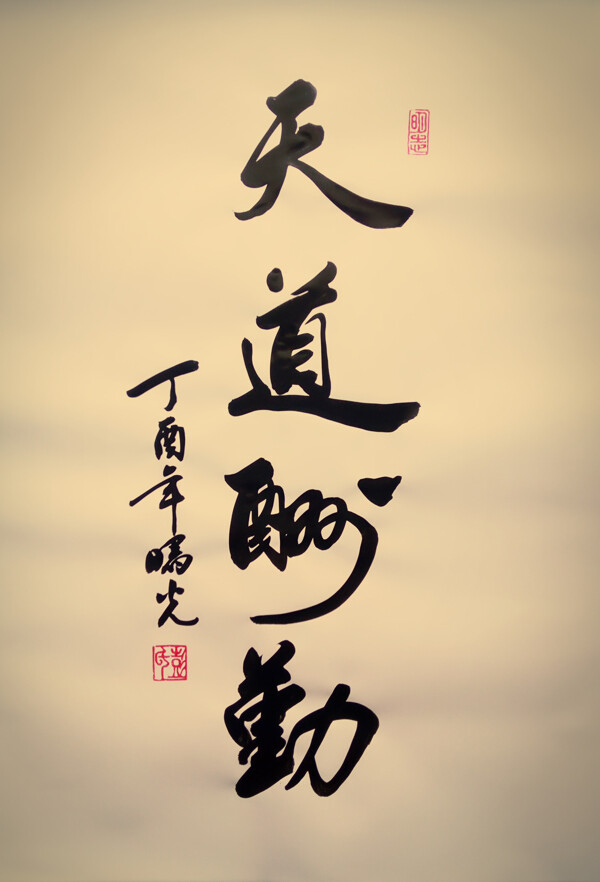 天道酬勤
丁酉年曙光